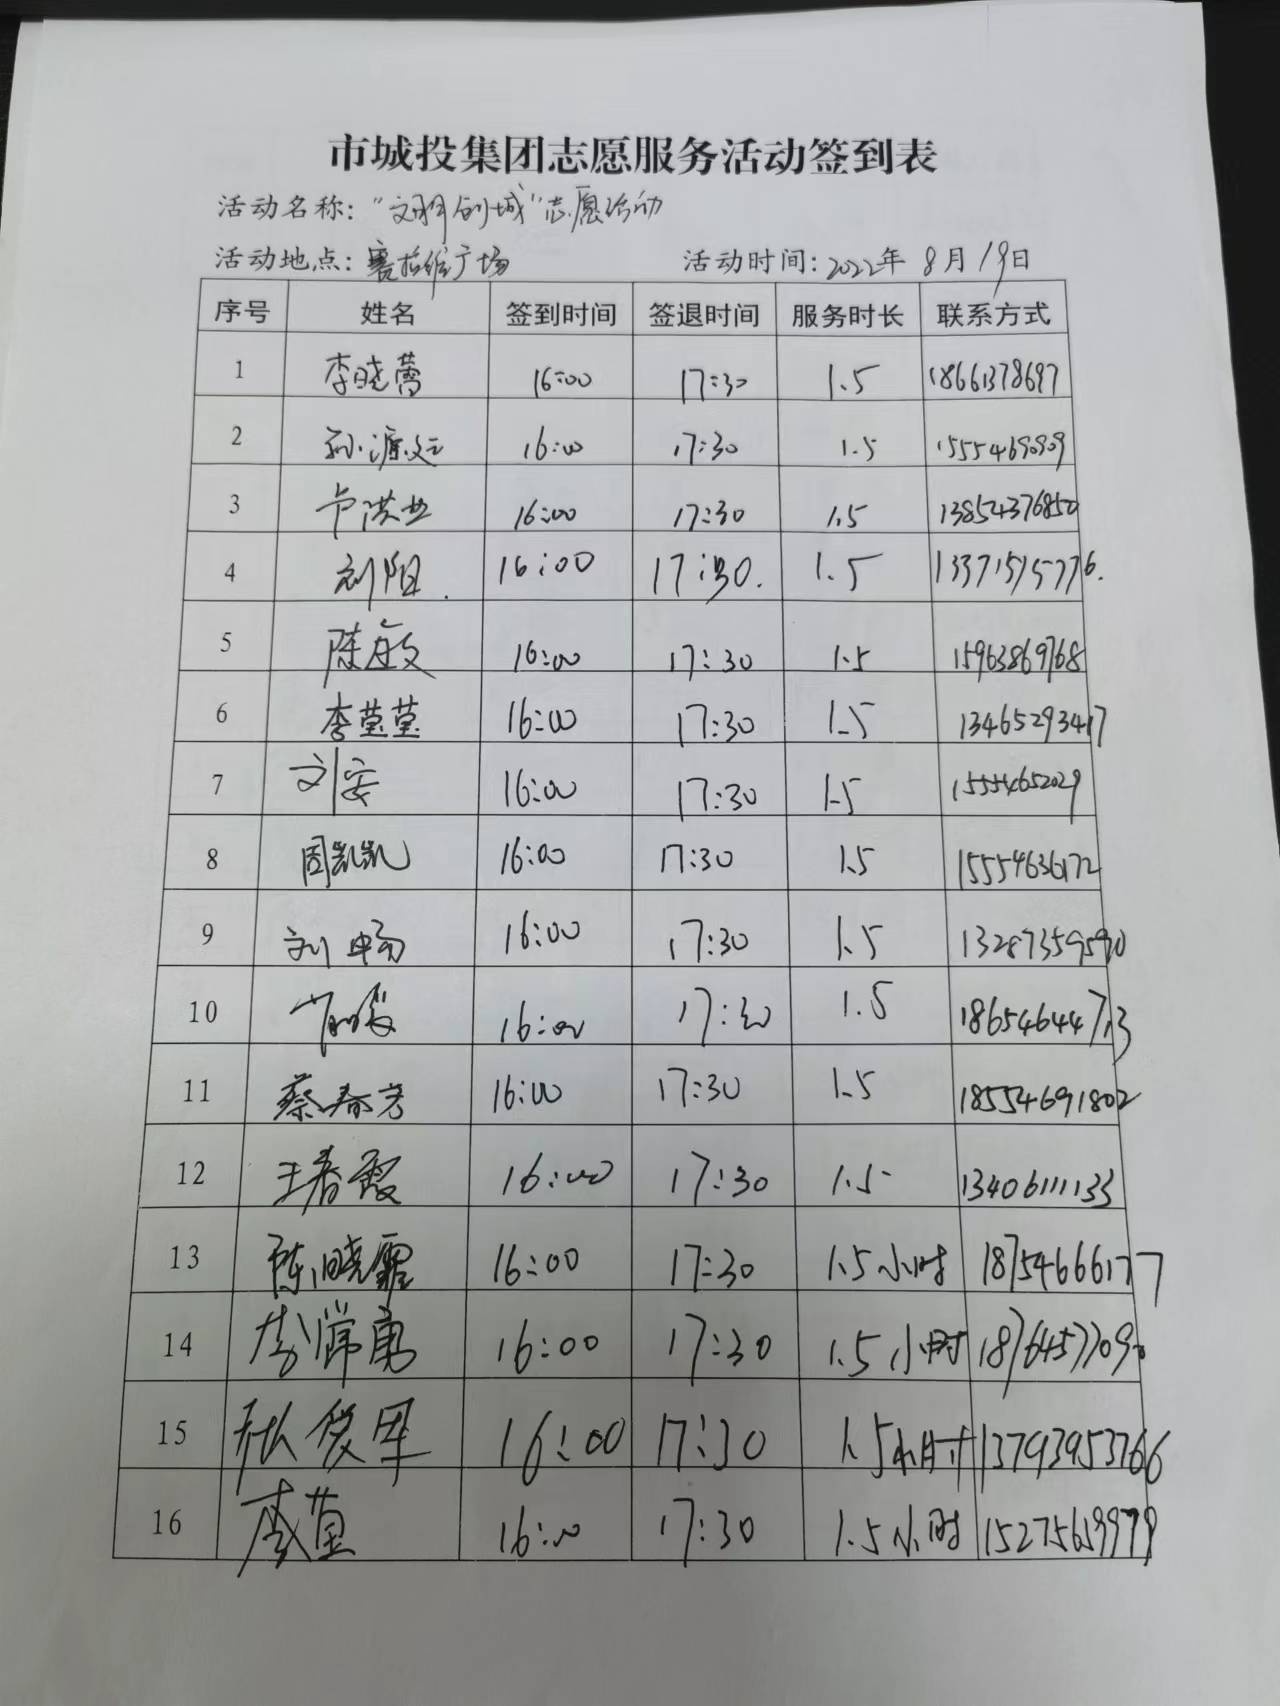 市城投集团志愿服务活动签到表
活动名称："文明创城"志愿活动
活动地点：赛格维广场 活动时间：2022年8月19日
序号 姓名 签到时间 签退时间 服务时长 联系方式
1 李晓蕾 16:00 17:30 1.5 18661378697
2 孙 16:00 17:30 1.5 15554690909
3 卢洪业 16:00 17:30 1.5 13854376850
4 刘阳. 16:00 17:30. 1.5 13371515776.
5 陈敏 16:00 17:30 1.5 15963869768
6 李莹莹 16:00 17:30 1.5 13465293417
7 刘安 16:00 17:30 1.5 15554652029
8 周凯凯 16:00 17:30 1.5 15554636172
9 刘畅 16:00 17:30 1.5 13287359590
10 16:00 17:30 1.5 18654644713
11 蔡春芳 16:00 17:30 1.5 18554691802
12 王春霞 16:00 17:30 1.5 13406111133
13 陈晓霞 16:00 17:30 1.5小时 18754666177
14 李常勇 16:00 17:30 1.5小时 18764577090
15 俊군 16:00 17:30 1.5小时 13793953766
16 李莹 16:00 17:30 1.5小时 15275619979